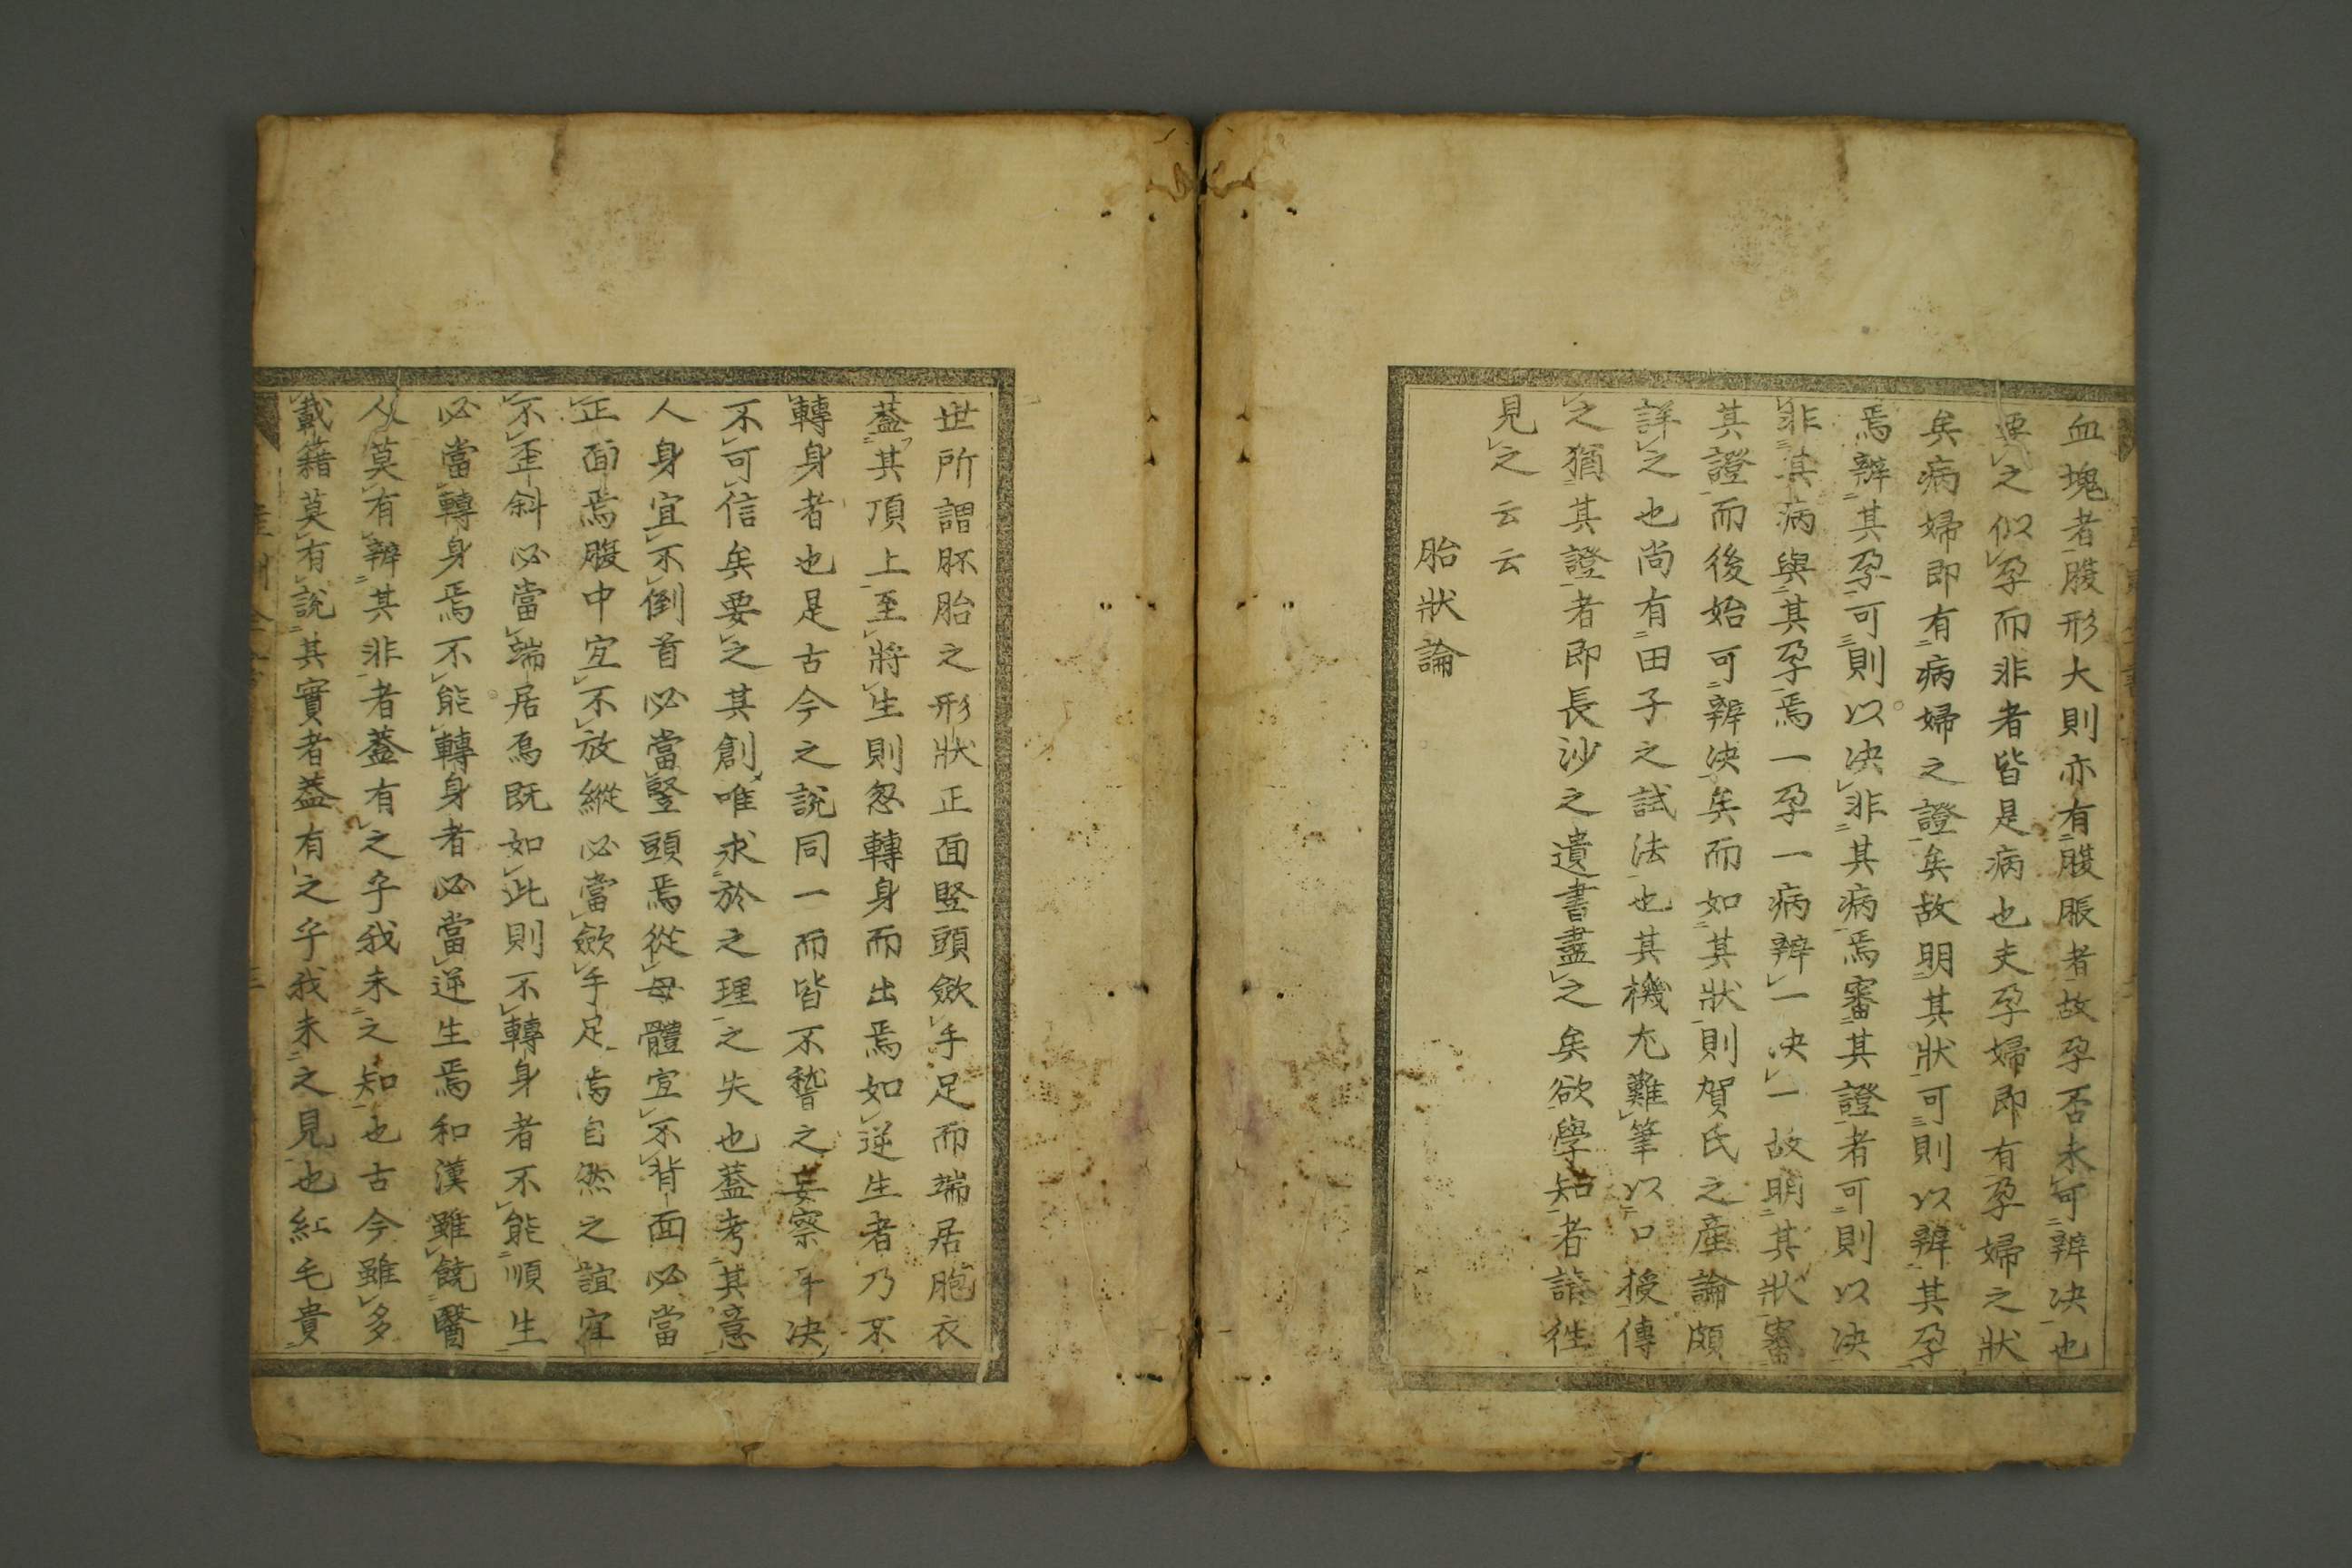 血塊者腹形大則亦有腹脹者故孕否未可辨決也
要之似孕而非者皆是病也夫孕婦即有孕婦之狀
矣病婦即有病婦之證矣故明其狀可則以辨其孕
焉辨其孕可則以決非其病焉審其證者可則以決
非其病與其孕焉一孕一病辨一決一故明其狀審
其證而後始可辨決矣而如其狀則賀氏之產論頗
詳之也尚有田子之試法也其機尤難筆以口授傳
之猶其證者即長沙之遺書盡之矣欲學知者請往
見之云云
胎狀論
世所謂胚胎之形狀正面竪頭歛手足而端居胞衣
蓋其頂上至將生則忽轉身而出焉如逆生者乃不
轉身者也是古今之說同一而皆不稽之妄察決
不可信矣要之其創唯求於之理之失也蓋考其意
人身宜不倒首必當竪頭焉從母體宜不背面必當
正面焉腹中宜不放縱必當歛手足焉自然之誼宜
不歪斜必當端居焉既如此則不轉身者不能順生
必當轉身焉不能轉身者必當逆生焉和漢雖饒醫
人莫有辨其非者蓋有之乎我未之知也古今雖多
載籍莫有說其實者蓋有之乎我未之見也紅毛貴